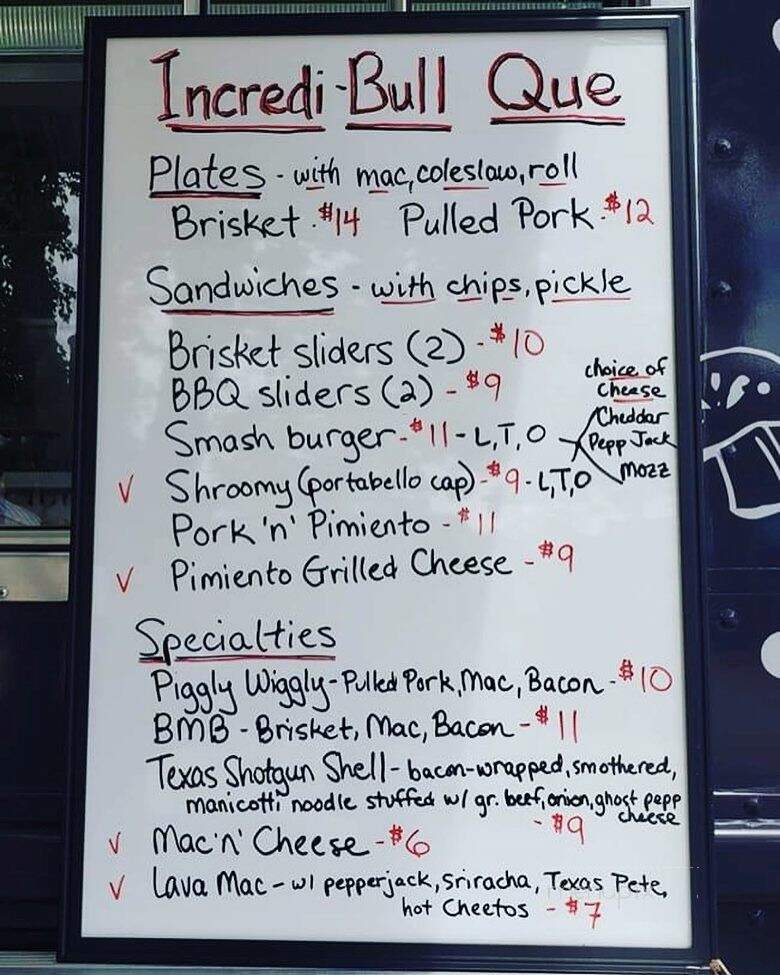 Incredi-Bull Que
Plates - with mac, coleslaw, roll
Brisket - $14 Pulled Pork - $12
Sandwiches - with chips, pickle
Brisket sliders (2) - $10
BBQ sliders (2) - $9
Smash burger - $11 - L, T, O
choice of
cheese
Cheddar
Pepp Jack
Mozz
✓ Shroomy (portabello cap) - $9 - L,T,O
Pork 'n' Pimiento - $11
✓ Pimiento Grilled Cheese - $9
Specialties
Piggly Wiggly - Pulled Pork, Mac, Bacon - $10
BMB - Brisket, Mac, Bacon - $11
Texas Shotgun Shell - bacon-wrapped, smothered,
manicotti noodle stuffed w/ gr. beef, onion, ghost pepp
cheese
- $9
✓ Mac 'n' Cheese - $6
✓ Lava Mac - w/ pepperjack, Sriracha, Texas Pete,
hot Cheetos - $7